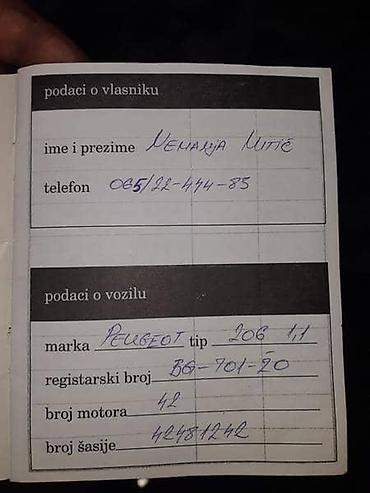 podaci o vlasniku
ime i prezime Nemanja Mitić
telefon 065/22-444-85
podaci o vozilu
marka Peugeot tip 206 1,1
registarski broj BG-701-ŽO
broj motora 42
broj šasije 42481242